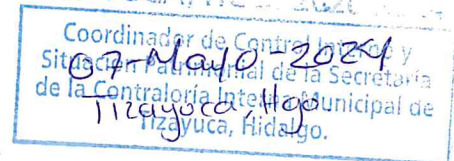 Coordinador de Control Interno y
Situación Patrimonial de la Secretaría
de la Contraloría Interna Municipal de
Tizayuca, Hidalgo.
07-Mayo-2024
Tizayuca, Hgo